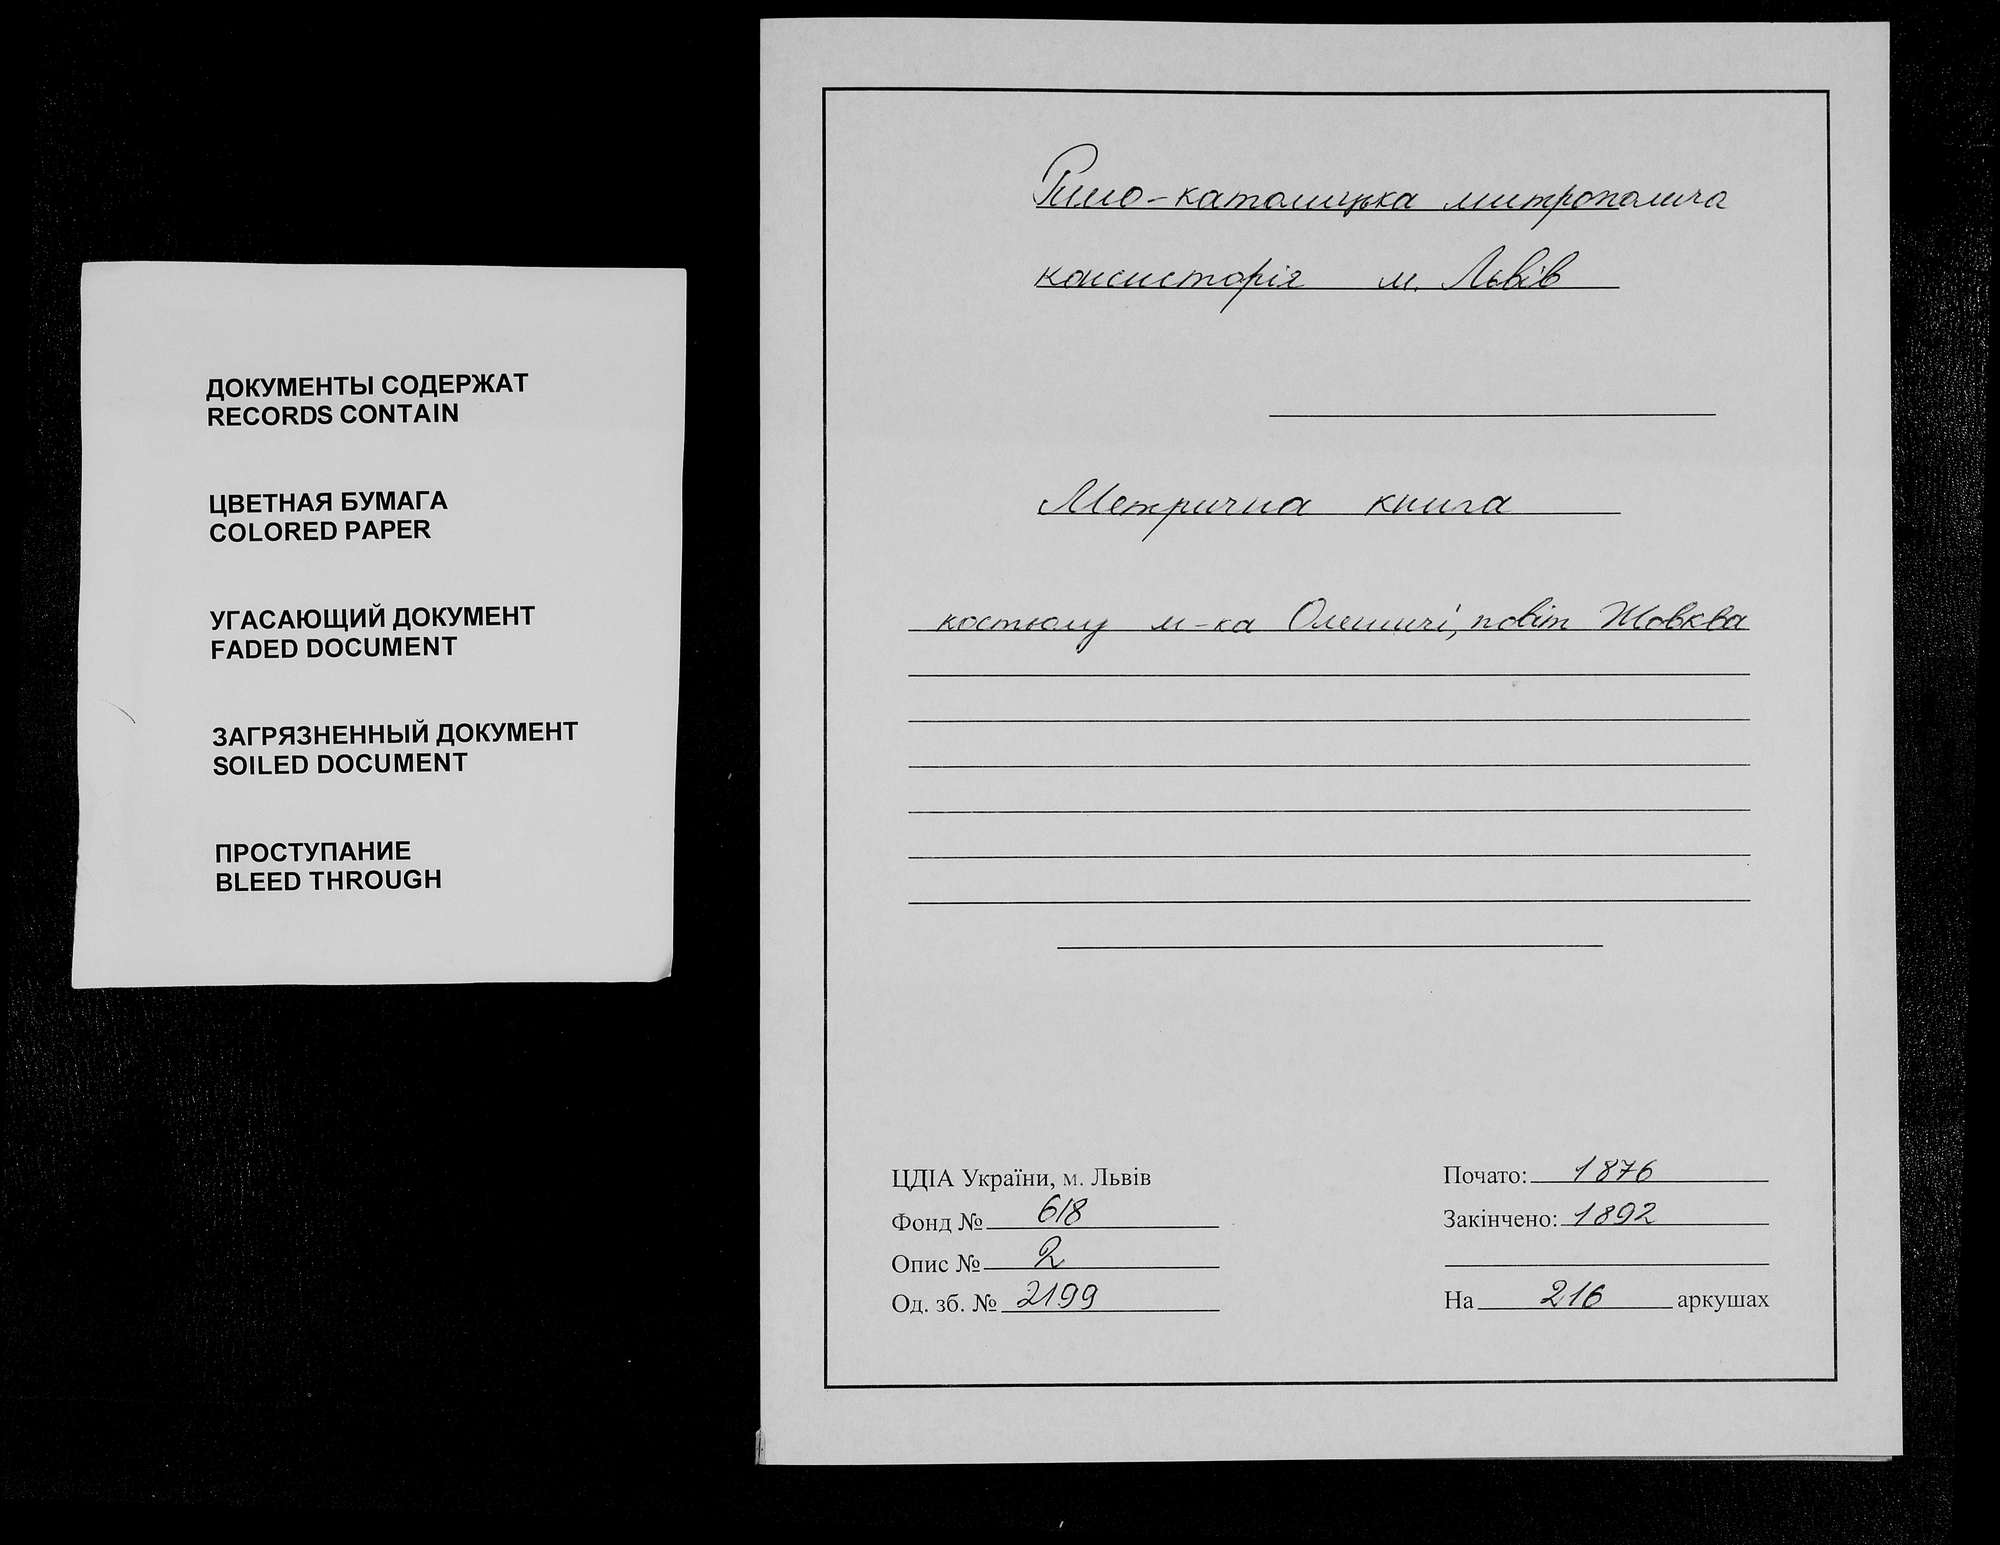 ДОКУМЕНТЫ СОДЕРЖАТ
RECORDS CONTAIN
ЦВЕТНАЯ БУМАГА
COLORED PAPER
УГАСАЮЩИЙ ДОКУМЕНТ
FADED DOCUMENT
ЗАГРЯЗНЕННЫЙ ДОКУМЕНТ
SOILED DOCUMENT
ПРОСТУПАНИЕ
BLEED THROUGH
Римо-католицька митрополича
консисторія м. Львів
Метрична книга
костьолу м-ка Олешичі, повіт Жовква
ЦДІА України, м. Львів
Фонд № 618
Опис № 2
Од. зб. № 2199
Почато: 1876
Закінчено: 1892
На 216 аркушах